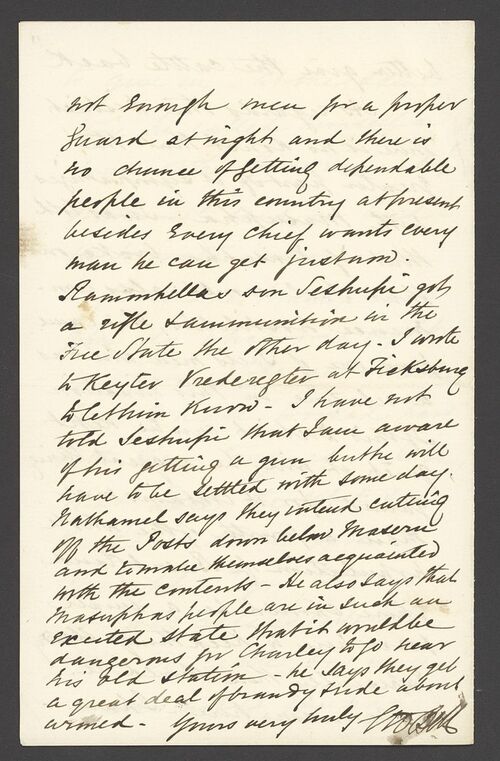 not Enough men for a proper
Guard at night and there is
no chance of Getting dependable
people in this country at present
besides Every Chief wants every
man he can get just now.
Ramonhellas son Seshupi got
a rifle & ammunition in the
Free State the other day - I wrote
to Keyter Vrederegter at Ficksburg
to let him Know - I have not
told Seshupi that I am aware
of his getting a gun but he will
have to be settled with some day.
Nathaniel says they intend cutting
off the Posts down below Maseru
and to make themselves acquainted
with the contents - He also says that
Masuphas people are in such an
Excited state that it would be
dangerous for Charley to go near
his old station - he says they get
a great deal of brandy & ride about
armed - Yours very truly